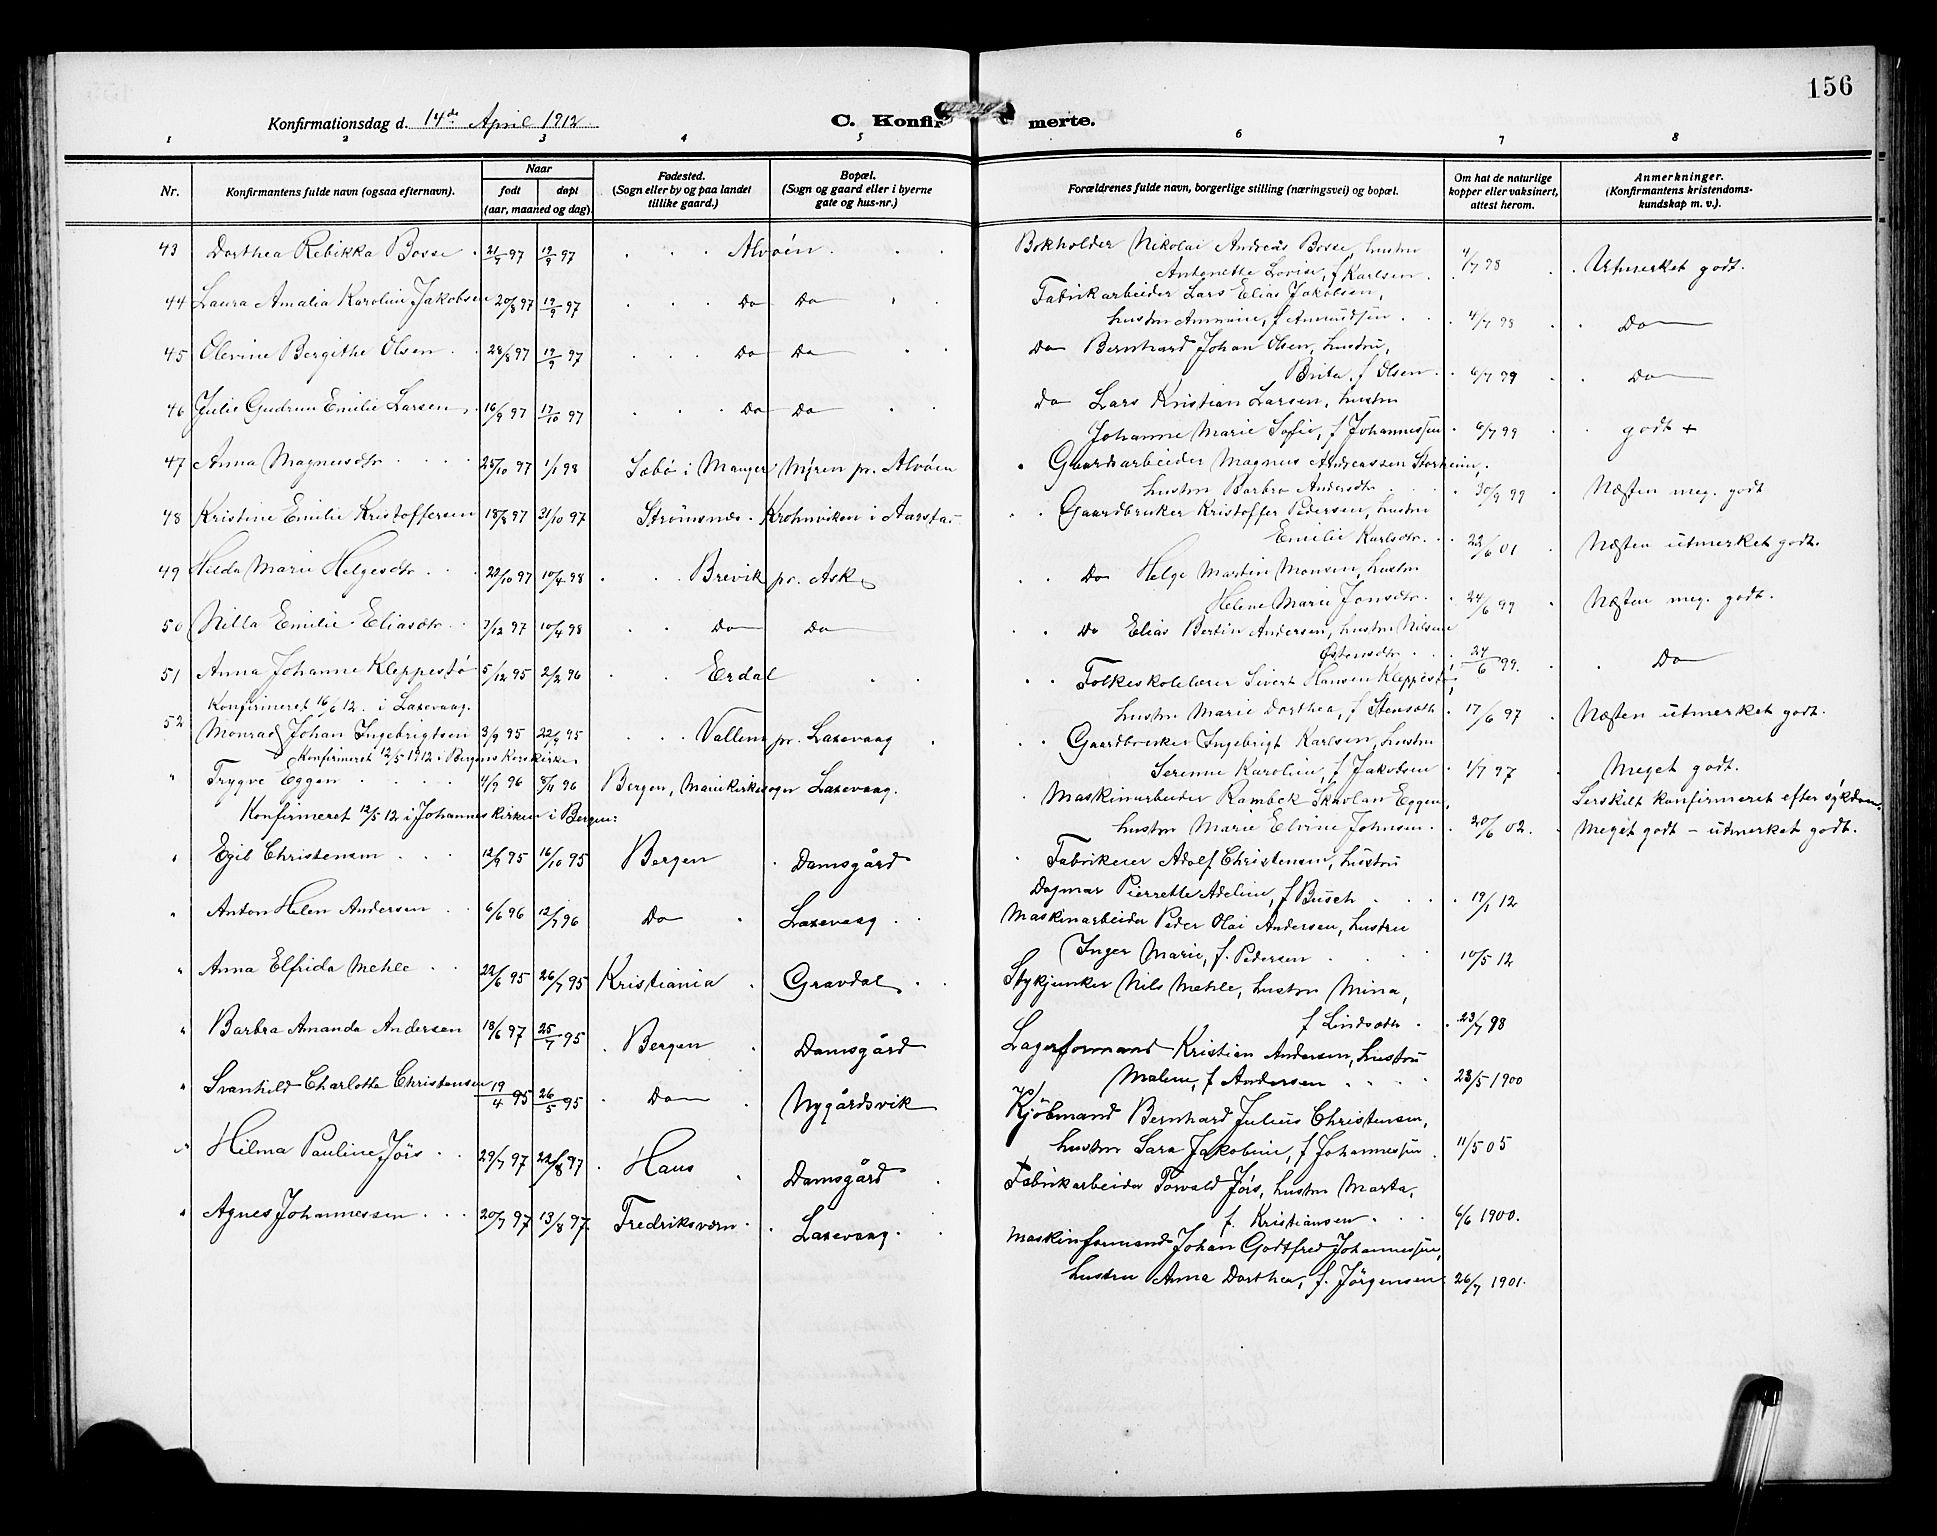 156
Konfirmationsdag d. 14de April 1912
C. Konfir merte.
1 2 3 4 5 6 7 8
Nr. Konfirmantens fulde navn (ogsaa efternavn). Naar født døpt (aar, maaned og dag). Fødested. (Sogn eller by og paa landet tillike gaard.) Bopæl. (Sogn og gaard eller i byerne gate og hus-nr.) Forældrenes fulde navn, borgerlige stilling (næringsvei) og bopæl. Om hat de naturlige kopper eller vaksinert, attest herom. Anmerkninger. (Konfirmantens kristendomskundskap m. v.).
43 Dorthea Rebikka Bosse 21/7 97 19/9 97 Alvøen Bokholder Nikolai Andreas Bosse, hustru
Antonette Lovise, f Karlsen 4/7 98 Utmerket godt.
44 Laura Amalia Karoline Jakobsen 20/8 97 19/9 97 Do Do Fabrikarbeider Lars Elias Jakobsen,
hustru Annine, f Amundsen 4/7 98 Do
45 Olevine Bergithe Olsen 28/8 97 19/9 97 Do Do Do Bernhard Johan Olsen, hustru,
Brita, f Olsen 6/7 99 Do
46 Julie Gudrun Emilie Larsen 16/9 97 17/10 97 Do Do Do Lars Kristian Larsen, hustru
Johanne Marie Sofie, f Johannessen 6/7 99 godt +
47 Anna Magnusdtr 25/10 97 1/1 98 Sæbø i Manger Myren pr. Alvøen Gaardarbeider Magnus Andreassen Storheim,
hustru Barbro Andersdtr 30/9 99 Næsten meg. godt
48 Kristine Emilie Kristoffersen 18/8 97 31/10 97 Strømsnes Krohnviken i Aarstad Gaardbruker Kristoffer Pedersen, hustru
Emilie Karlsdtr. 22/6 01 Næsten utmerket godt.
49 Hilda Marie Helgesdtr 22/10 97 10/4 98 Brevik pr. Ask Do Helge Martin Monsen, hustru
Helene Marie Jonsdtr. 24/6 99 Næsten meg. godt.
50 Nilla Emilie Eliasdtr 7/12 97 10/4 98 Do Do Do Elias Bertin Andersen, hustru Nilsine
Østensdtr 24/6 99. Do
51 Anna Johanne Kleppestø 5/12 95 2/2 96 Erdal Folkeskolelærer Sivert Hansen Kleppestø,
Konfirmeret 16/6 12. i Laxevaag. hustru Marie Dorthea, f Stensdtr 17/6 97 Næsten utmerket godt.
52 Monrad Johan Ingebrigtsen 3/9 95 22/9 95 Vallem pr. Laxevaag Gaardbruker Ingebrigt Karlsen, hustru
Konfirmeret 12/5 1912 i Bergens Korskirke Serenne Karoline, f Jakobsen 1/7 97 Meget godt.
" Trygve Eggen 4/9 96 8/11 96 Bergen, Mariekirkesogn Laxevaag. Maskinarbeider Rambek Skavlan Eggen, Særskilt konfirmeret efter sykdom.
Konfirmeret 12/5 12 i Johanneskirken i Bergen: hustru Marie Elvine Johnsen. 20/6 02. Meget godt – utmerket godt.
" Egil Christensen 12/9 95 16/10 95 Bergen Damsgård Fabrikeier Adolf Christensen, hustru
Dagmar Pierrette Adeline, f Busch 19/1 12
" Anton Helen Andersen 6/6 96 12/7 96 Do Laxevaag Maskinarbeider Peder Olai Andersen, hustru
Inger Marie, f. Pedersen 10/5 12
" Anna Elfrida Mehle 22/6 95 26/7 95 Kristiania Gravdal Stykjunker Nils Mehle, hustru Mina,
f Lindsdtr 23/7 98
" Barbra Amanda Andersen 18/6 97 25/7 95 Bergen Damsgård Lagerformand Kristian Andersen, hustru
Malene, f Andersen 23/5 1900
" Svanhild Charlotte Christensen 19/4 95 26/5 95 Do Nygårdsvik Kjøbmand Bernhard Julius Christensen,
hustru Sara Jakobine, f Johannessen 11/5 05
" Hilma Pauline Jørs 29/7 97 22/8 97 Haus Damsgård Fabrikarbeider Torvald Jørs, hustru Marta,
f. Kristiansen 6/6 1900.
" Agnes Johannessen 20/7 97 13/8 97. Fredriksværn Laxevaag. Maskinformand Johan Godtfred Johannessen,
hustru Anna Dorthea, f. Jørgensen 26/7 1901.